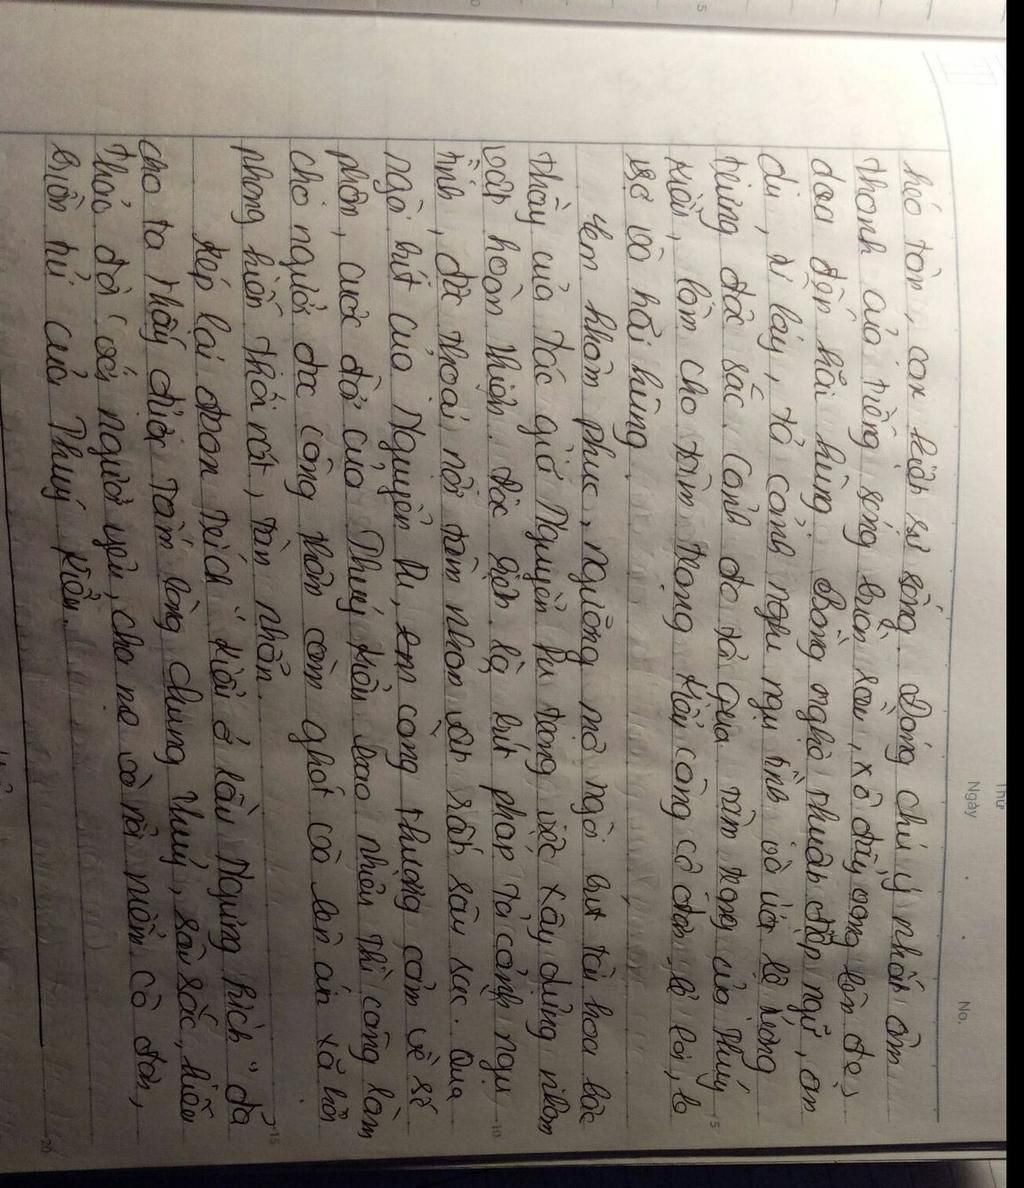 Thứ
Ngày
No.
héo tàn, cạn kiệt sự sống. Đáng chú ý nhất âm
thanh của tiếng sóng buồn sầu, xô đẩy oang lên đe
doạ đến hãi hùng. Bằng nghệ thuật điệp ngữ, ẩn
dụ, từ láy, tả cảnh ngụ tình và ước lệ tượng
trưng đặc sắc. Cảnh đc tả qua tâm trạng của Thuý
Kiều, làm cho tâm trạng Kiều càng cô đơn, lẻ loi, lo
sợ và hãi hùng.
Yem khâm phục, ngưỡng mộ ngòi bút tài hoa bậc
thầy của tác giả Nguyễn Du trong việc xây dựng nhân
vật hoàn thiện. Đặc biệt là bút pháp tả cảnh ngụ
tình, độc thoại nội tâm nhân vật rất sâu sắc. Qua
ngòi bút của Nguyễn Du, em càng thương cảm về số
phận, cuộc đời của Thuý Kiều bao nhiêu thì càng làm
cho người đọc công thêm căm ghét và lên án xã hội
phong kiến thối nát, tàn nhẫn.
Kép lại đoạn trích "Kiều ở lầu Ngưng Bích" đã
cho ta thấy được tấm lòng chung thuỷ, sâu sắc, hiếu
thảo đối với người yêu, cha mẹ và nỗi niềm cô đơn,
buồn tủi của Thuý Kiều.
5
10
15
20